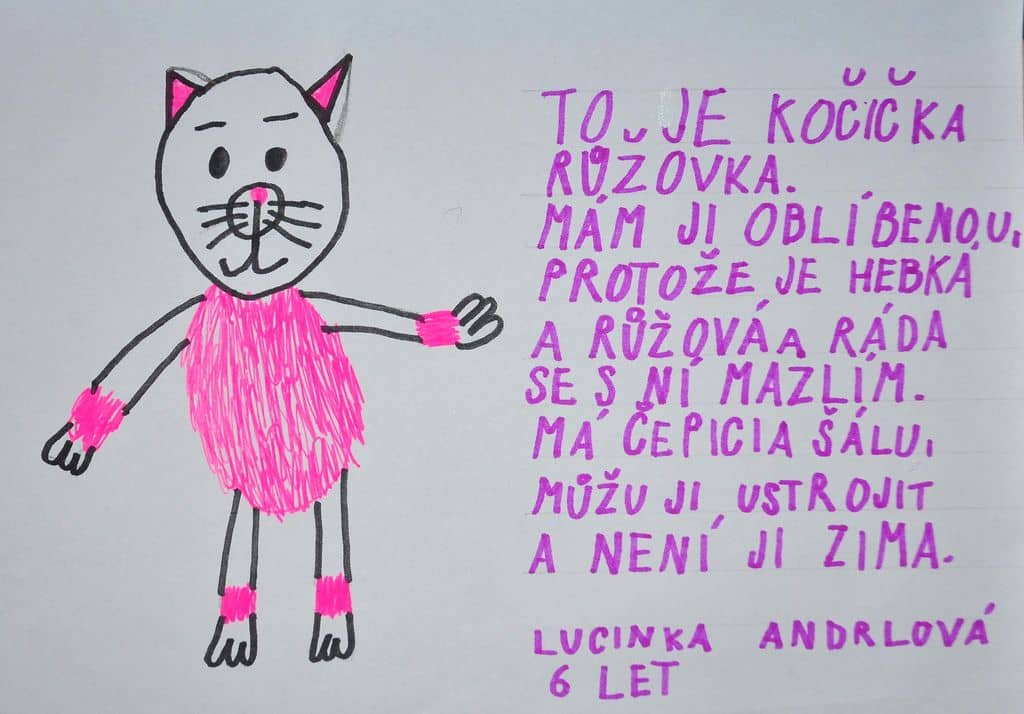 TO JE KOČIČKA
RŮŽOVKA.
MÁM JI OBLÍBENOU,
PROTOŽE JE HEBKÁ
A RŮŽOVÁ A RÁDA
SE S NÍ MAZLÍM.
MÁ ČEPICI A ŠÁLU,
MŮŽU JI USTROJIT
A NENÍ JI ZIMA.
LUCINKA ANDRLOVÁ
6 LET